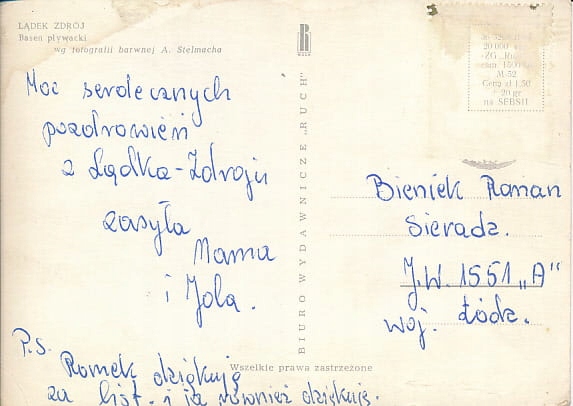 LĄDEK ZDRÓJ
Basen pływacki
wg fotografii barwnej A. Stelmacha
Moc serdecznych
pozdrowień
z Lądka-Zdroju
zasyła
Mama
i Jola.
P.S.
Romek dziękuję
za list. i ja również dziękuję.
BIURO WYDAWNICZE „RUCH"
RUCH
Wszelkie prawa zastrzeżone
20 000
M-52
Cena zł 1,50
+ 20 gr
na SEBSiI
Bieniek Roman
Sieradz.
J.W. 1551 „A"
woj. Łódz.